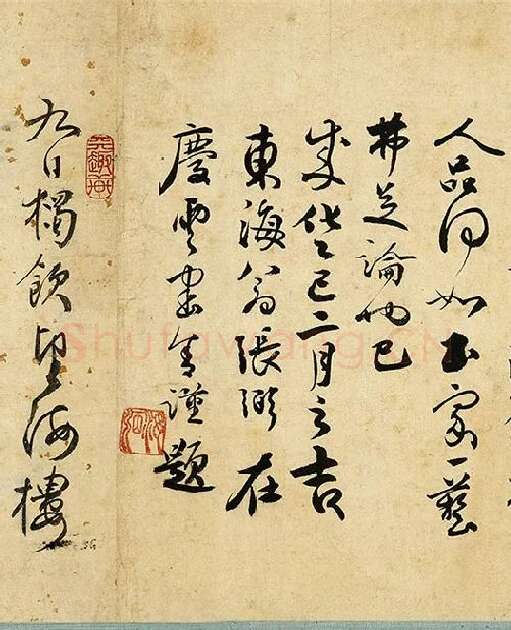 人品何如書家一藝
弗足論也已
成化乙巳二月之吉
東海翁張弼在
慶雲書舍謹題
九日獨飲望海樓